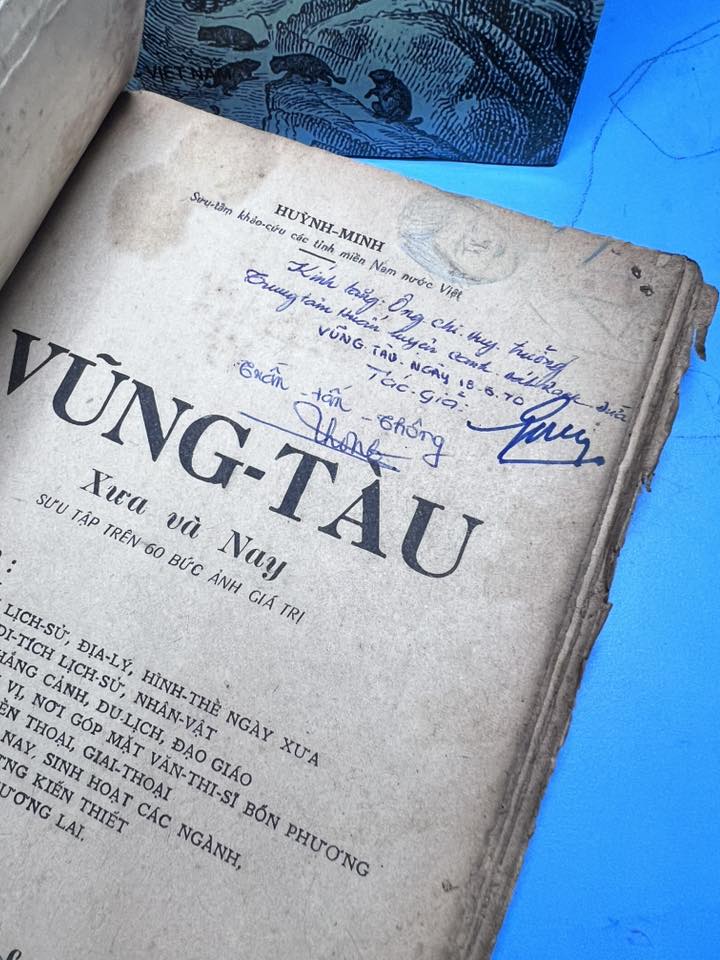 VIỆT NAM
HUỲNH-MINH
Sưu-tầm khảo-cứu các tỉnh miền Nam nước Việt
Kính tặng: Ông chỉ huy trưởng
Trung tâm huấn luyện cảnh sát
VŨNG TÀU. NGÀY 18.6.70
Tác-giả:
Trần-tấn-Thông
VŨNG-TÀU
Xưa và Nay
SƯU TẬP TRÊN 60 BỨC ẢNH GIÁ TRỊ
:
LỊCH-SỬ, ĐỊA-LÝ, HÌNH-THỂ NGÀY XƯA
DI-TÍCH LỊCH-SỬ, NHÂN-VẬT
CẢNH, DU-LỊCH, ĐẠO GIÁO
VỊ, NƠI GÓP MẶT VĂN-THI-SĨ BỐN PHƯƠNG
THOẠI, GIAI-THOẠI
NAY, SINH HOẠT CÁC NGÀNH,
KIẾN THIẾT
LAI.